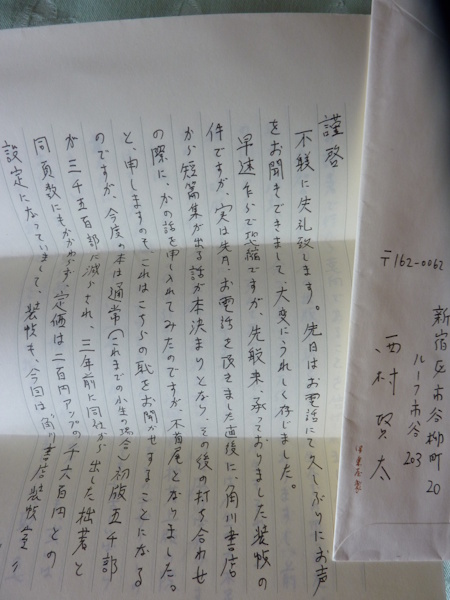 謹啓
不躾に失礼致します。先日はお電話にて久しぶりにお声
をお聞きできまして、大変にうれしく存じました。
早速乍らで恐縮ですが、先般来、承っておりました装幀の
件ですが、実は先月、お電話を頂きました直後に、角川書店
から短篇集が出る話が本決まりとなり、その後の打ち合わせ
の際に、かの話を申し入れてみたのですが、不首尾となりました。
と、申しますのも、これはこちらの恥をお聞かせすることになる
のですが、今度の本は通常(これまでの小生の場合)初版五千部
が三千五百部に減らされ、三年前に同社から出した拙著と
同頁数にもかかわらず、定価は二百円アップの千六百円との
設定になっていまして、装幀も、今回は角川書店装幀室
〒162-0062
新宿区市谷柳町20
ルーフ市谷203
西村賢太